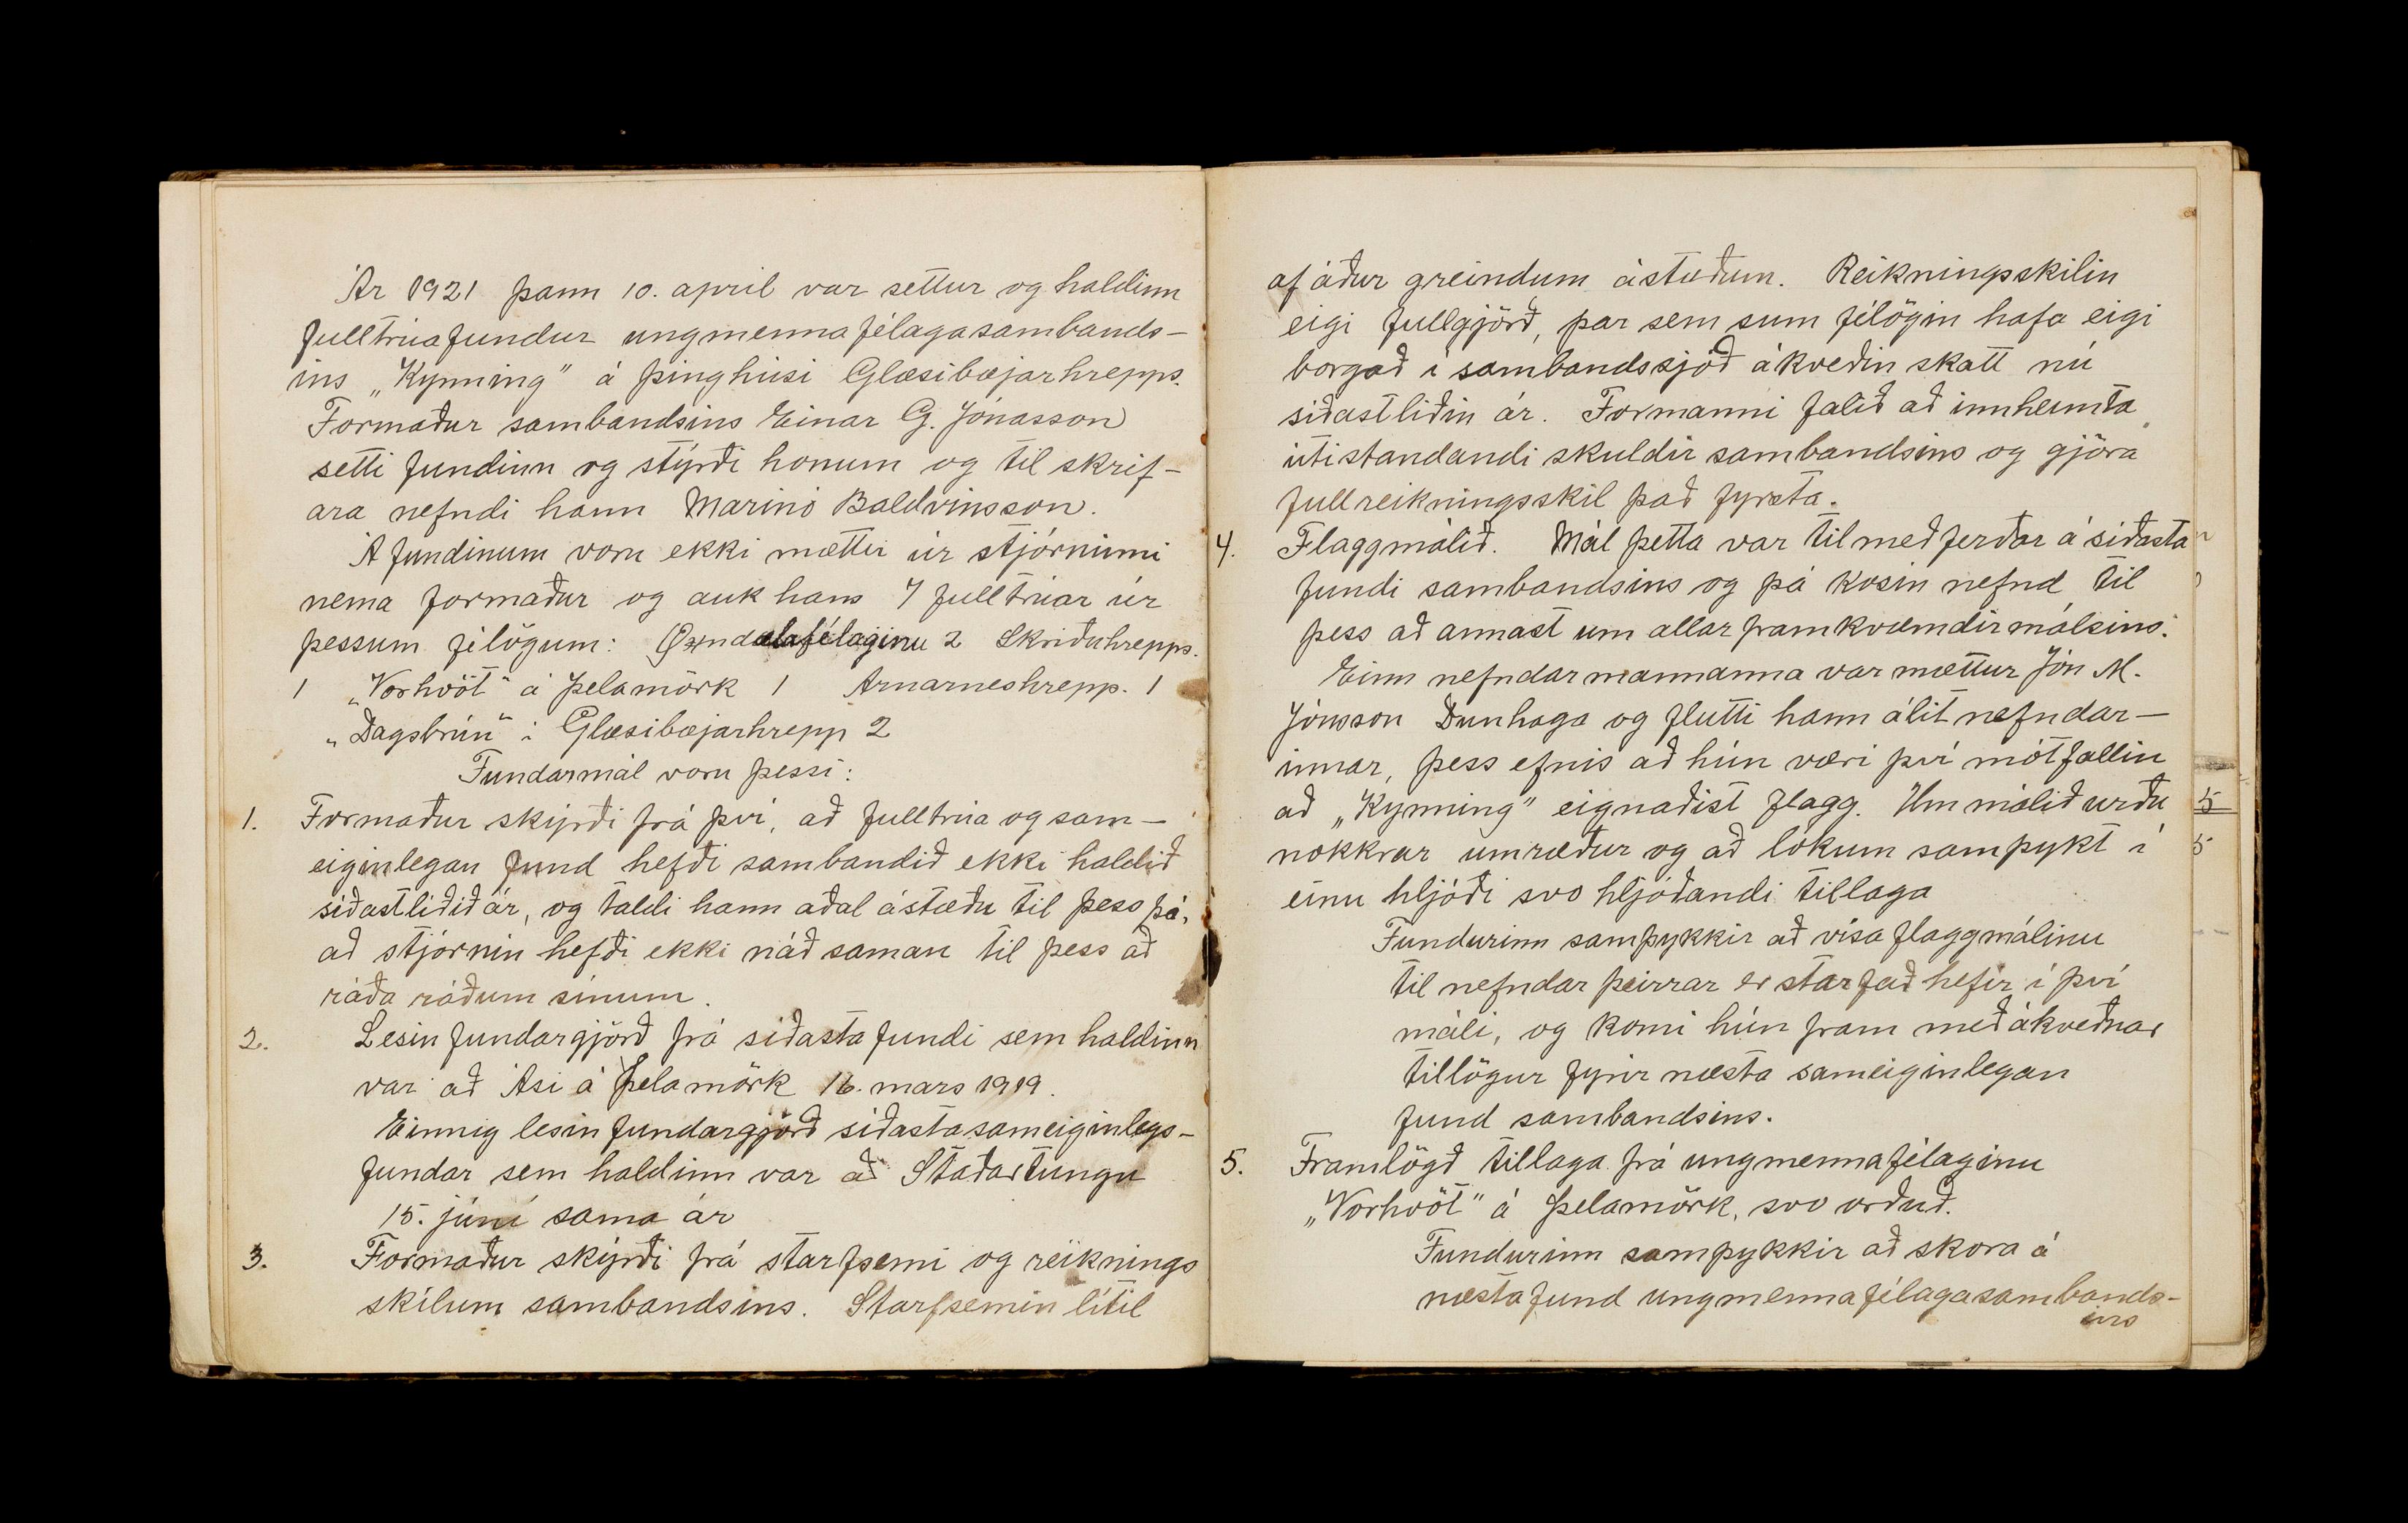 Ár 1921 þann 10. april var settur og haldinn
fulltrúafundur ungmennafélagasambands-
ins „Kynning" á þinghúsi Glæsibæjarhrepps.
Formaður sambandsins Einar G. Jónasson
setti fundinn og stýrði honum og til skrif-
ara nefndi hann Marinó Baldvinsson.
Á fundinum voru ekki mættir úr stjórninni
nema formaður og auk hans 7 fulltrúar úr
þessum félögum: Öxndælafélaginu 2 Skriðuhrepps.
1 „Vorhvöt" á Þelamörk 1 Arnarneshrepp. 1
„Dagsbrún" í Glæsibæjarhrepp 2
Fundarmál voru þessi:
1. Formaður skýrði frá því, að fulltrúa og sam-
eiginlegan fund hefði sambandið ekki haldið
síðastliðið ár, og taldi hann aðal ástæðu til þess þá,
að stjórnin hefði ekki náð saman til þess að
ráða ráðum sínum.
2. Lesin fundargjörð frá síðasta fundi sem haldinn
var að Ási á Þelamörk 16. mars 1919.
Einnig lesin fundargjörð síðasta sameiginlegs-
fundar sem haldinn var að Staðartungu
15. júní sama ár
3. Formaður skýrði frá starfsemi og reiknings
skilum sambandsins. Starfsemin lítil
af áður greindum ástæðum. Reikningsskilin
eigi fullgjörð, þar sem sum félögin hafa eigi
borgað í sambandssjóð ákveðin skatt nú
síðastliðin ár. Formanni falið að innheimta
útistandandi skuldir sambandsins og gjöra
full reikningsskil það fyrsta.
4. Flaggmálið. Mál þetta var til meðferðar á síðasta
fundi sambandsins og þá kosin nefnd til
þess að annast um allar framkvæmdir málsins.
Einn nefndarmannanna var mættur Jón M.
Jónsson Dunhaga og flutti hann álit nefndar-
innar, þess efnis að hún væri því mótfallin
að „Kynning" eignaðist flagg. Um málið urðu
nokkrar umræður og að lokum samþykt í
einu hljóði svo hljóðandi tillaga
Fundurinn samþykkir að vísa flaggmálinu
til nefndar þeirrar er starfað hefir í því
máli, og komi hún fram með ákveðnar
tillögur fyrir næsta sameiginlegan
fund sambandsins.
5. Framlögð tillaga frá ungmennafélaginu
„Vorhvöt" á Þelamörk, svo orðuð.
Fundurinn samþykkir að skora á
næsta fund ungmennafélagasambands-
ins
5
5